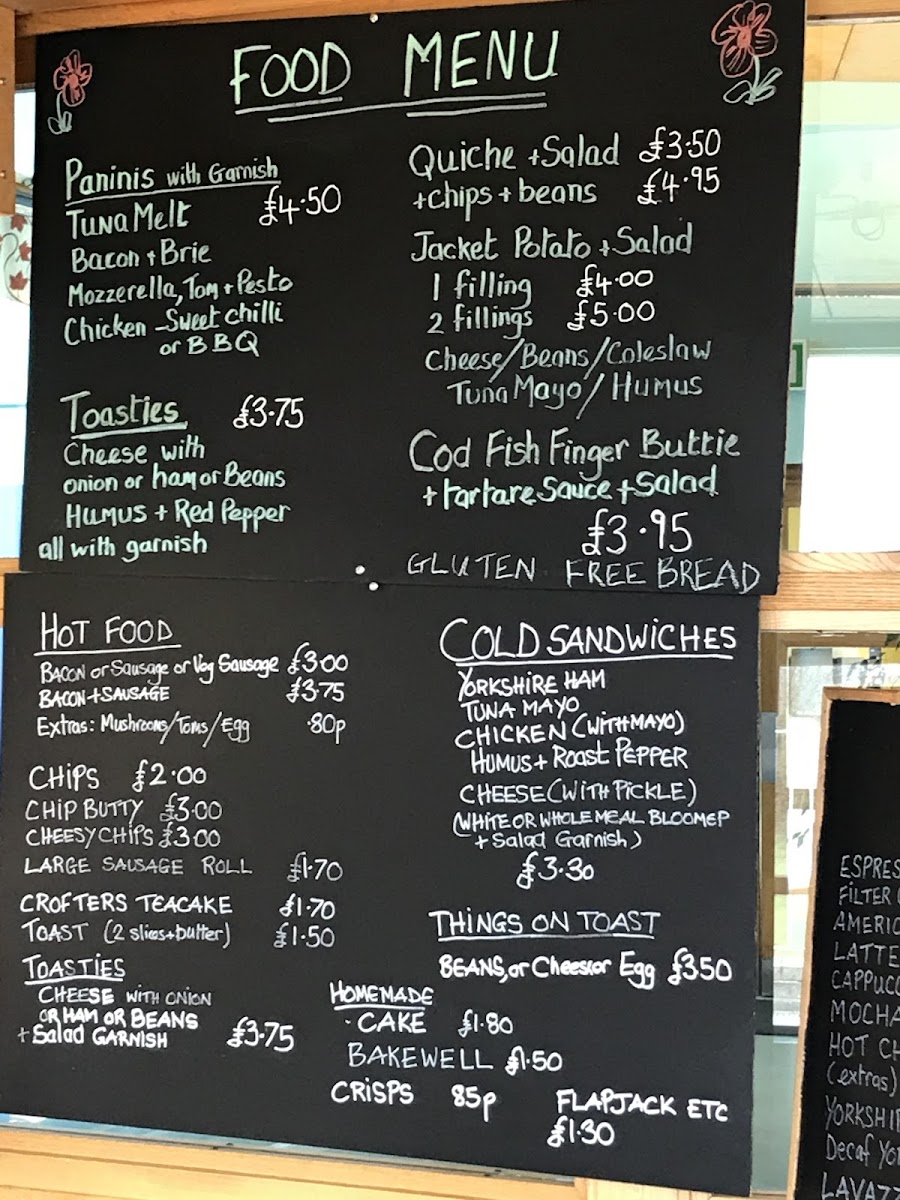 FOOD MENU
Paninis with Garnish
Tuna Melt £4.50
Bacon + Brie
Mozzerella, Tom + Pesto
Chicken - Sweet chilli
or BBQ
Toasties £3.75
Cheese with
onion or ham or Beans
Humus + Red Pepper
all with garnish
Quiche + Salad £3.50
+ chips + beans £4.95
Jacket Potato + Salad
1 filling £4.00
2 fillings £5.00
Cheese/Beans/Coleslaw
Tuna Mayo/Humus
Cod Fish Finger Buttie
+ tartare Sauce + Salad
£3.95
GLUTEN FREE BREAD
HOT FOOD
BACON or Sausage or Veg Sausage £3.00
BACON + SAUSAGE £3.75
Extras: Mushrooms/Toms/Egg .80p
CHIPS £2.00
CHIP BUTTY £3.00
CHEESY CHIPS £3.00
LARGE SAUSAGE ROLL £1.70
CROFTERS TEACAKE £1.70
TOAST (2 slices + butter) £1.50
TOASTIES
CHEESE WITH ONION
OR HAM OR BEANS
+ Salad GARNISH £3.75
COLD SANDWICHES
YORKSHIRE HAM
TUNA MAYO
CHICKEN (WITH MAYO)
HUMUS + Roast PEPPER
CHEESE (WITH PICKLE)
(WHITE OR WHOLEMEAL BLOOMER
+ Salad Garnish)
£3.30
THINGS ON TOAST
BEANS, or Cheese or Egg £3.50
HOMEMADE
CAKE £1.80
BAKEWELL £1.50
CRISPS 85p
FLAPJACK ETC
£1.30
ESPRES
FILTER
AMERIC
LATTE
CAPPUCC
MOCHA
HOT CH
(extras)
YORKSHI
Decaf Yo
LAVAZZ